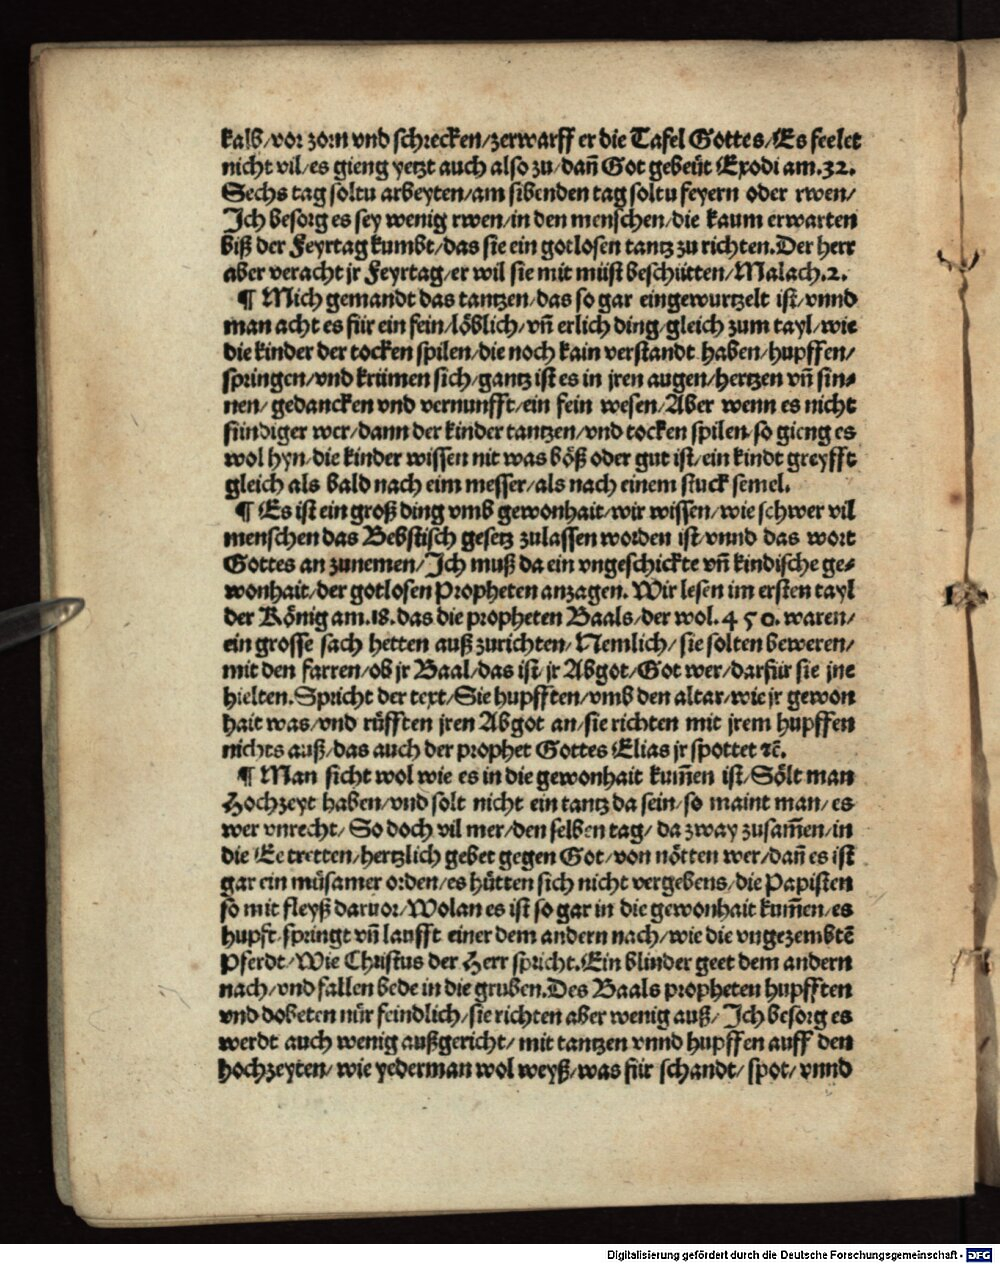 kalb/vor zorn vnd schrecken/zerwarff er die Tafel Gottes/Es feelet
nicht vil/es gieng yetzt auch also zu/dañ Got gebeüt Exodi am.32.
Sechs tag soltu arbeyten/am sibenden tag soltu feyern oder rwen/
Ich besorg es sey wenig rwen/in den menschen/die kaum erwarten
biß der Feyrtag kumbt/das sie ein gotlosen tantz zu richten.Der herr
aber veracht jr Feyrtag/er wil sie mit müst beschütten/Malach.2.
¶ Mich gemandt das tantzen/das so gar eingewurtzelt ist/vnnd
man acht es für ein fein/löblich/vñ erlich ding/gleich zum tayl/wie
die kinder der tocken spilen/die noch kain verstandt haben/hupffen/
springen/vnd krümen sich/gantz ist es in jren augen/hertzen vñ sin⸗
nen/gedancken vnd vernunfft/ein fein wesen/Aber wenn es nicht
sündiger wer/dann der kinder tantzen/vnd tocken spilen/so gieng es
wol hyn/die kinder wissen nit was böß oder gut ist/ein kindt greyfft
gleich als bald nach eim messer/als nach einem stuck semel.
¶ Es ist ein groß ding vmb gewonhait/wir wissen/wie schwer vil
menschen das Bebstisch gesetz zulassen worden ist/vnnd das wort
Gottes an zunemen/Ich muß da ein vngeschickte vñ kindische ge⸗
wonhait/der gotlosen Propheten anzagen. Wir lesen im ersten tayl
der König am.18.das die propheten Baals/der wol.450.waren/
ein grosse sach hetten auß zurichten/Nemlich/sie solten beweren/
mit den farren/ob jr Baal/das ist/jr Abgot/Got wer/darfür sie jne
hielten.Spricht der text/Sie hupfften/vmb den altar/wie jr gewon
hait was/vnd rüfften jren Abgot an/sie richten mit jrem hupffen
nichts auß/das auch der prophet Gottes Elias jr spottet ⁊c̃.
¶ Man sicht wol wie es in die gewonhait kum̃en ist/Sölt man
Hochzeyt haben/vnd solt nicht ein tantz da sein/so maint man/es
wer vnrecht/So doch vil mer/den selben tag/da zway zusam̃en/in
die Ee tretten/hertzlich gebet gegen Got/von nötten wer/dañ es ist
gar ein müsamer orden/es hütten sich nicht vergebens/die Papisten
so mit fleyß daruor/Wolan es ist so gar in die gewonhait kum̃en/es
hupft/springt vñ laufft einer dem andern nach/wie die vngezembtẽ
Pferdt/Wie Christus der Herr spricht.Ein blinder geet dem andern
nach/vnd fallen bede in die gruben.Des Baals propheten hupfften
vnd dobeten nür feindlich/sie richten aber wenig auß/Ich besorg es
werdt auch wenig außgericht/mit tantzen vnnd hupffen auff den
hochzeyten/wie yederman wol weyß/was für schandt/spot/vnnd
Digitalisierung gefördert durch die Deutsche Forschungsgemeinschaft - DFG